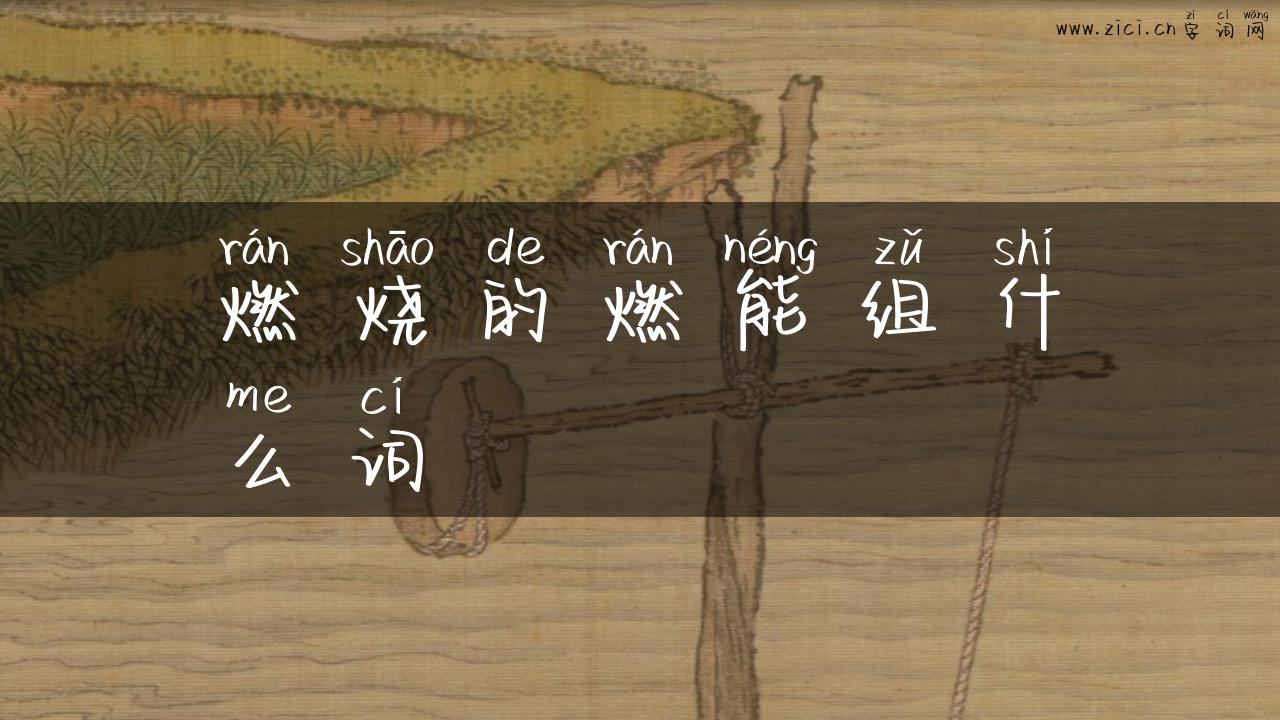 zì cí wǎng
www.zici.cn 字词网
rán shāo de rán néng zǔ shí
燃烧的燃能组什
me cí
么词